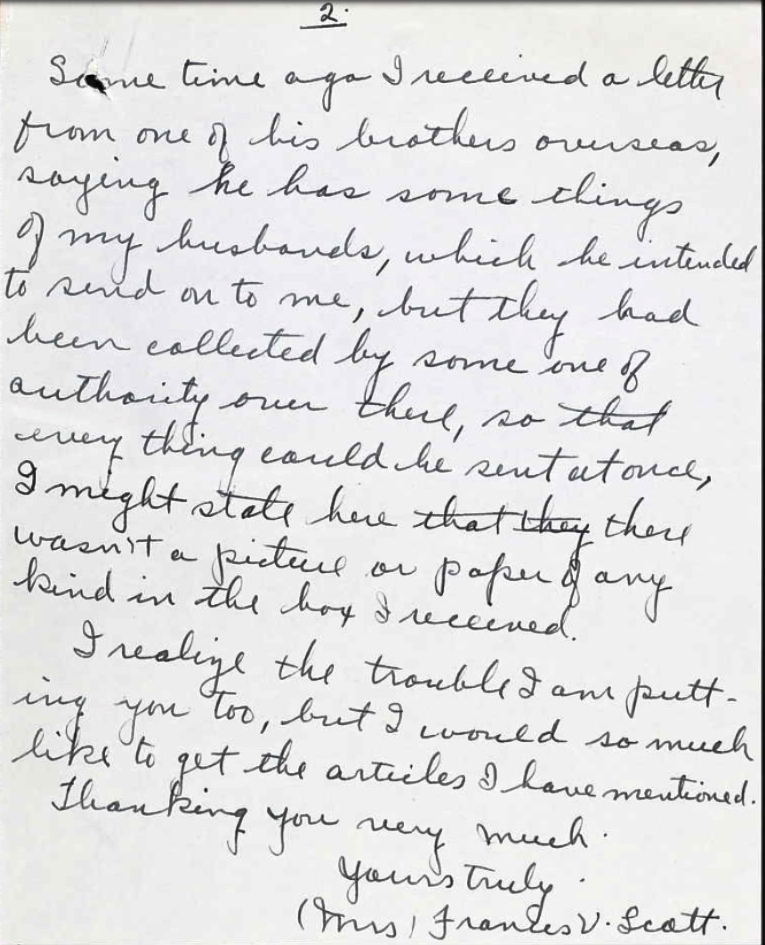 2.
Some time ago I received a letter
from one of his brothers overseas,
saying he has some things
of my husbands, which he intended
to send on to me, but they had
been collected by some one of
authority over there, so that
every thing could be sent at once,
I might state here that they there
wasn't a picture or paper of any
kind in the box I received.
I realize the trouble I am putt-
ing you too, but I would so much
like to get the articles I have mentioned.
Thanking you very much.
Yours truly.
(Mrs) Frances V. Scott.